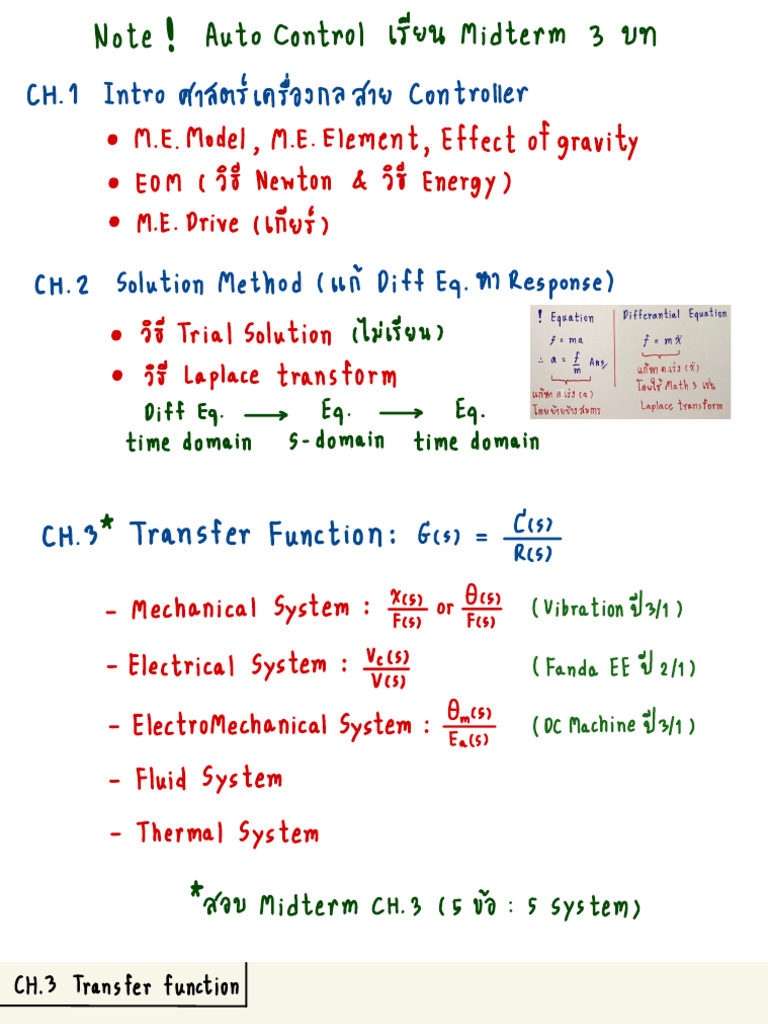 Note! Auto Control เรียน Midterm 3 บท
CH.1 Intro ศาสตร์เครื่องกลสาย Controller
• M.E. Model, M.E. Element, Effect of gravity
• EOM (วิธี Newton & วิธี Energy)
• M.E. Drive (เกียร์)
CH.2 Solution Method (แก้ Diff Eq. หา Response)
• วิธี Trial Solution (ไม่เรียน)
• วิธี Laplace transform
Diff Eq. → Eq. → Eq.
time domain s-domain time domain
! Equation
f = ma
∴ a = f/m Ans,
แก้หาค.เร่ง (a)
โดยย้ายข้างสมการ
Differantial Equation
f = mẍ
แก้หาค.เร่ง (ẍ)
โดยใช้ Math 3 เช่น
Laplace transform
CH.3* Transfer Function: G(s) = C(s)/R(s)
- Mechanical System : x(s)/F(s) or θ(s)/F(s) (Vibration ปี3/1)
- Electrical System : Vc(s)/V(s) (Fanda EE ปี 2/1)
- ElectroMechanical System : θm(s)/Ea(s) (DC Machine ปี3/1)
- Fluid System
- Thermal System
*สอบ Midterm CH.3 (5 ข้อ : 5 System)
CH.3 Transfer function